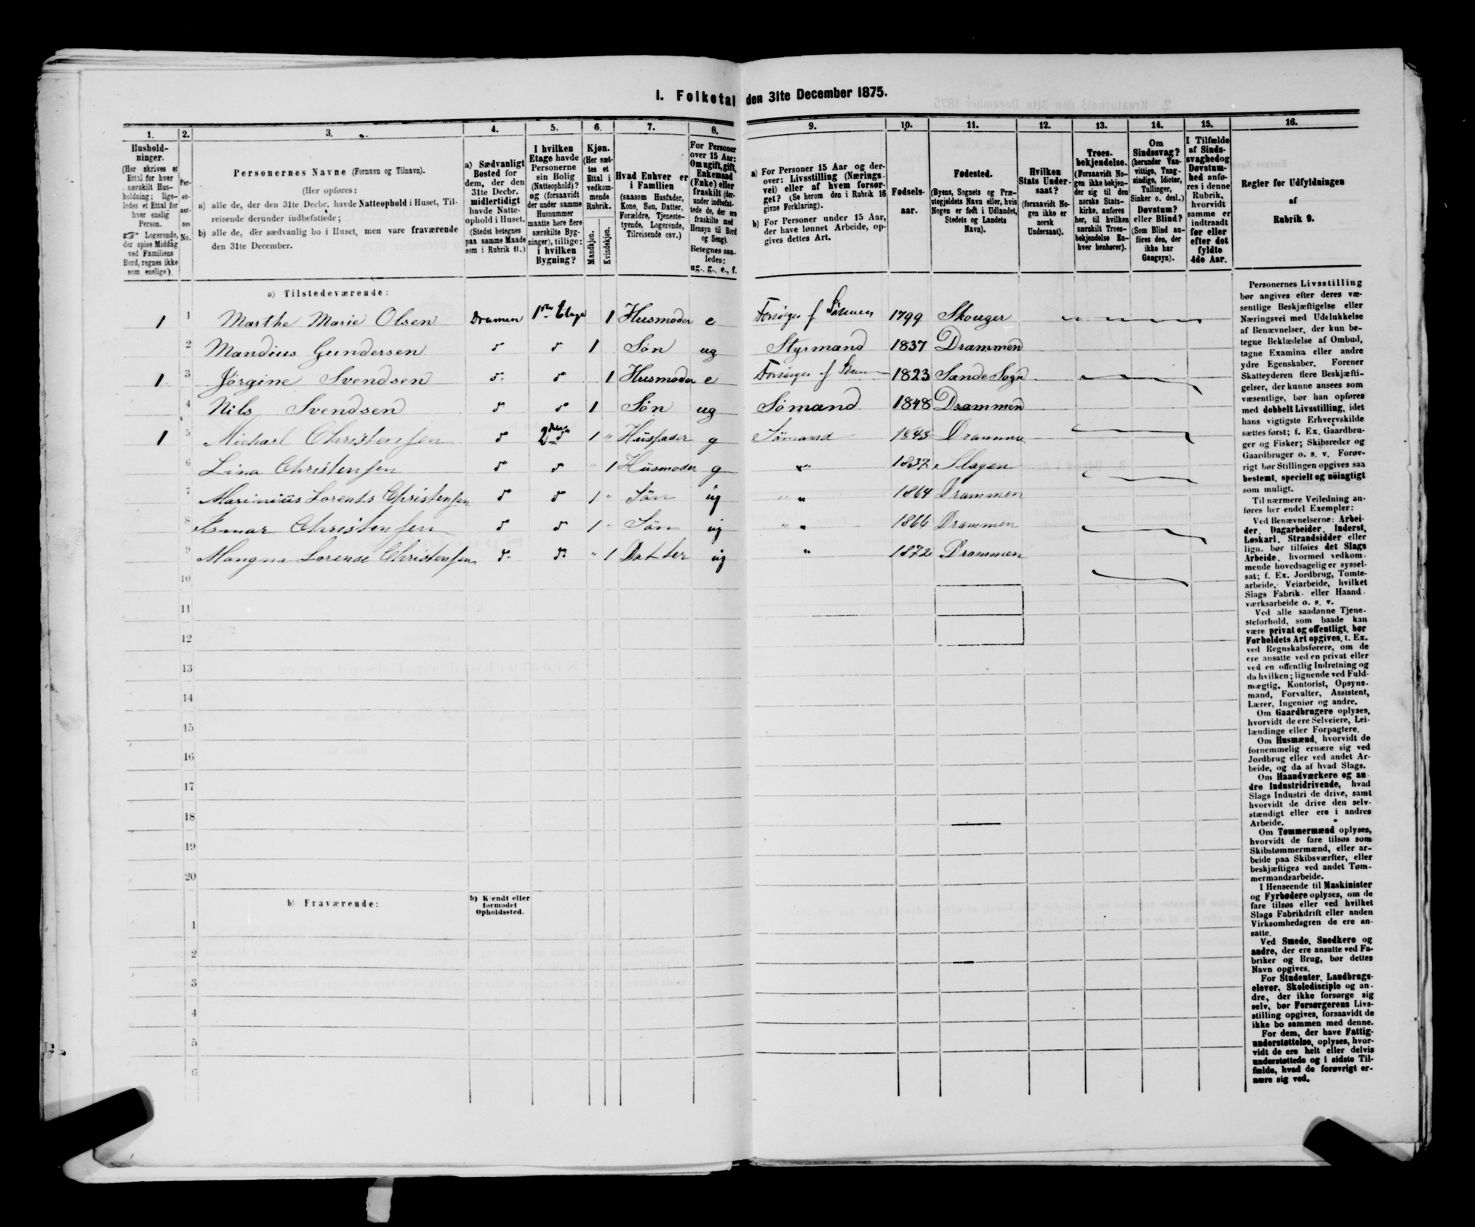 I. Folketal den 31te December 1875.
1. 2. 3. 4. 5. 6. 7. 8. 9. 10. 11. 12. 13. 14. 15. 16.
Hushold-
ninger.
(Her skrives et
Ettal for hver
særskilt Hus-
holdning; lige-
ledes et Ettal for
hver enslig
Person.
☞ Logerende,
der spise Middag
ved Familiens
Bord, regnes ikke
som enslige).
Per-
so-
ner-
nes
No.
Personernes Navne (Fornavn og Tilnavn).
(Her opføres:
a) alle de, der den 31te Decbr. havde Natteophold i Huset, Til-
reisende derunder indbefattede;
b) alle de, der sædvanlig bo i Huset, men vare fraværende
den 31te December.
a) Sædvanligt
Bosted for
dem, der den
31te Decbr.
midlertidigt
havde Natte-
ophold i Huset.
(Stedet betegnes
paa samme Maade
som i Rubrik 11.)
I hvilken
Etage havde
Personerne
sin Bolig
(Natteophold)?
og (forsaavidt
der under samme
Husnummer
maatte høre flere
særskilte Byg-
ninger), tillige:
i hvilken
Bygning?
Kjøn.
(Her sæt-
tes et
Ettal i
vedkom-
mende
Rubrik.
Mandkjøn.
Kvindekjøn.
Hvad Enhver er
i Familien
(saasom Husfader,
Kone, Søn, Datter,
Forældre, Tjeneste-
tyende, Logerende,
Tilreisende osv.)
For Personer
over 15 Aar:
Om ugift, gift,
Enkemand
(Enke) eller
fraskilt (der-
under indbefat-
tede de, der ere
fraskilte med
Hensyn til Bord
og Seng).
Betegnes saa-
ledes:
ug., g., e., f.
a) For Personer 15 Aar og der-
over: Livsstilling (Nærings-
vei) eller af hvem forsør-
get? (Se herom den i Rubrik 16
givne Forklaring).
b) For Personer under 15 Aar,
der have lønnet Arbeide, op-
gives dettes Art.
Fødsels-
aar.
Fødested.
(Byens, Sognets og Præ-
stegjeldets Navn eller, hvis
Nogen er født i Udlandet,
Stedets og Landets
Navn).
Hvilken
Stats Under-
saat?
(forsaavidt No-
gen ikke er
norsk
Undersaat).
Troes-
bekjendelse.
(Forsaavidt No-
gen ikke bekjen-
der sig til den
norske Stats-
kirke, anføres
her, til hvilken
særskilt Troes-
bekjendelse En-
hver henhører).
Om
Sindssvag?
(herunder Van-
vittige, Tung-
sindige, Idioter,
Tullinger,
Sinker o. desl.)
Døvstum?
eller Blind?
(Som Blind an-
føres den, der
ikke har
Gangsyn).
I Tilfælde
af Sinds-
svaghed og
Døvstum-
hed anfø-
res i denne
Rubrik,
hvorvidt
samme er
indtraadt
før eller
efter det
fyldte
4de Aar.
Regler for Udfyldningen
af
Rubrik 9.
a) Tilstedeværende:
1 1 Marthe Marie Olsen Dramen 1ste Etage 1 Husmoder e Forsørges af Sønnen 1799 Skouger
2 Mandius Gundersen " " 1 Søn ug Styrmand 1837 Drammen
1 3 Jørgine Svendsen " " 1 Husmoder e Forsørges af Sønnen 1823 Sande Sogn
4 Nils Svendsen " " 1 Søn ug Sømand 1848 Drammen
1 5 Michael Christensen " 1 " Husfader g Sømand Dramme
6 Lina Christensen " " " 1 Husmoder g " 1837 Slagen
7 Marinius Lorents Christensen " " 1 " Søn ug " " 1864 Drammen
8 Christensen " " 1 " Søn ug " " 1866 Drammen
9 Mangna Lorense Christensen " " " 1 Datter ug " 1872 Drammen
10
11
12
13
14
15
16
17
18
19
20
b) Fraværende:
b) Kjendt eller
formodet
Opholdssted.
1
2
3
4
5
6
Personernes Livsstilling
bør angives efter deres væ-
sentlige Beskjæftigelse eller
Næringsvei med Udelukkelse
af Benævnelser, der kun be-
tegne Beklædelse af Ombud,
tagne Examina eller andre
ydre Egenskaber. Forener
Skatteyderen flere Beskjæfti-
gelser, der kunne ansees som
væsentlige, bør han opføres
med dobbelt Livsstilling, idet
hans vigtigste Erhvervskilde
sættes først; f. Ex. Gaardbru-
ger og Fisker; Skibsreder og
Gaardbruger o. s. v. Forøv-
rigt bør Stillingen opgives saa
bestemt, specielt og nøiagtigt
som muligt.
Til nærmere Veiledning an-
føres her endel Exempler:
Ved Benævnelserne: Arbei-
der, Dagarbeider, Inderst,
Løskarl, Strandsidder eller
lign. bør tilføies det Slags
Arbeide, hvormed vedkom-
mende hovedsagelig er syssel-
sat; f. Ex. Jordbrug, Tomte-
arbeide, Veiarbeide, hvilket
Slags Fabrik- eller Haand-
værksarbeide o. s. v.
Ved alle saadanne Tjene-
steforhold, som baade kan
være privat og offentligt, bør
Forholdets Art opgives, t. Ex.
ved Regnskabsførere, om de
ere ansatte ved en privat eller
ved en offentlig Indretning og
da hvilken; lignende ved Fuld-
mægtig, Kontorist, Opsyns-
mand, Forvalter, Assistent,
Lærer, Ingeniør og andre.
Om Gaardbrugere oplyses,
hvorvidt de ere Selveiere, Lei-
lændinge eller Forpagtere.
Om Husmænd, hvorvidt de
fornemmelig ernære sig ved
Jordbrug eller ved andet Ar-
beide, og da af hvad Slags.
Om Haandværkere og an-
dre Industridrivende, hvad
Slags Industri de drive, samt
hvorvidt de drive den selv-
stændigt eller ere i andres
Arbeide.
Om Tømmermænd oplyses,
hvorvidt de fare tilsøs som
Skibstømmermænd, eller ar-
beide paa Skibsværfter, eller
beskjæftiges ved andet Tøm-
mermandsarbeide.
I Henseende til Maskinister
og Fyrbødere oplyses, om de
fare tilsøs eller ved hvilket
Slags Fabrikdrift eller anden
Virksomhedsgren de ere an-
satte.
Ved Smede, Snedkere og
andre, der ere ansatte ved Fa-
briker og Brug, bør dettes
Navn opgives.
For Studenter, Landbrugs-
elever, Skoledisciple og an-
dre, der ikke forsørge sig
selv, bør Forsørgerens Livs-
stilling opgives, forsaavidt de
ikke bo sammen med denne.
For dem, der have Fattig-
understøttelse, oplyses, hvor-
vidt de ere helt eller delvis
understøttede og i sidste Til-
fælde, hvad de forøvrigt er-
nære sig ved.